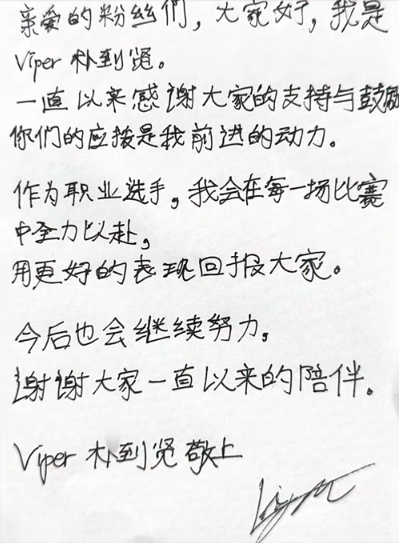 亲爱的粉丝们，大家好，我是
Viper 朴到贤。
一直以来感谢大家的支持与鼓励
你们的应援是我前进的动力。
作为职业选手，我会在每一场比赛
中全力以赴，
用更好的表现回报大家。
今后也会继续努力，
谢谢大家一直以来的陪伴。
Viper 朴到贤 敬上